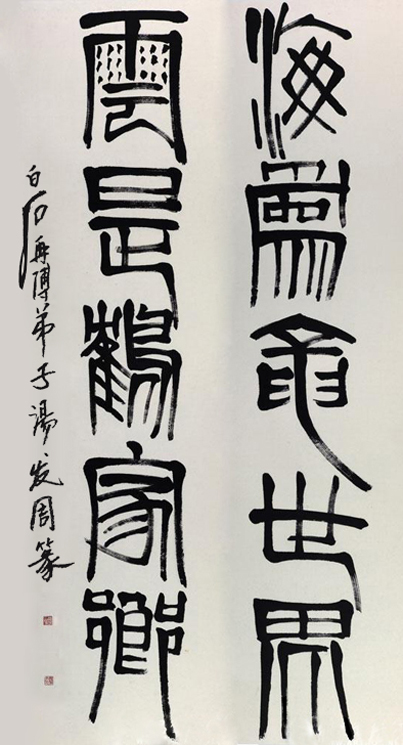 海為龍世界
雲是鶴家鄉
白石再傳弟子湯发周篆